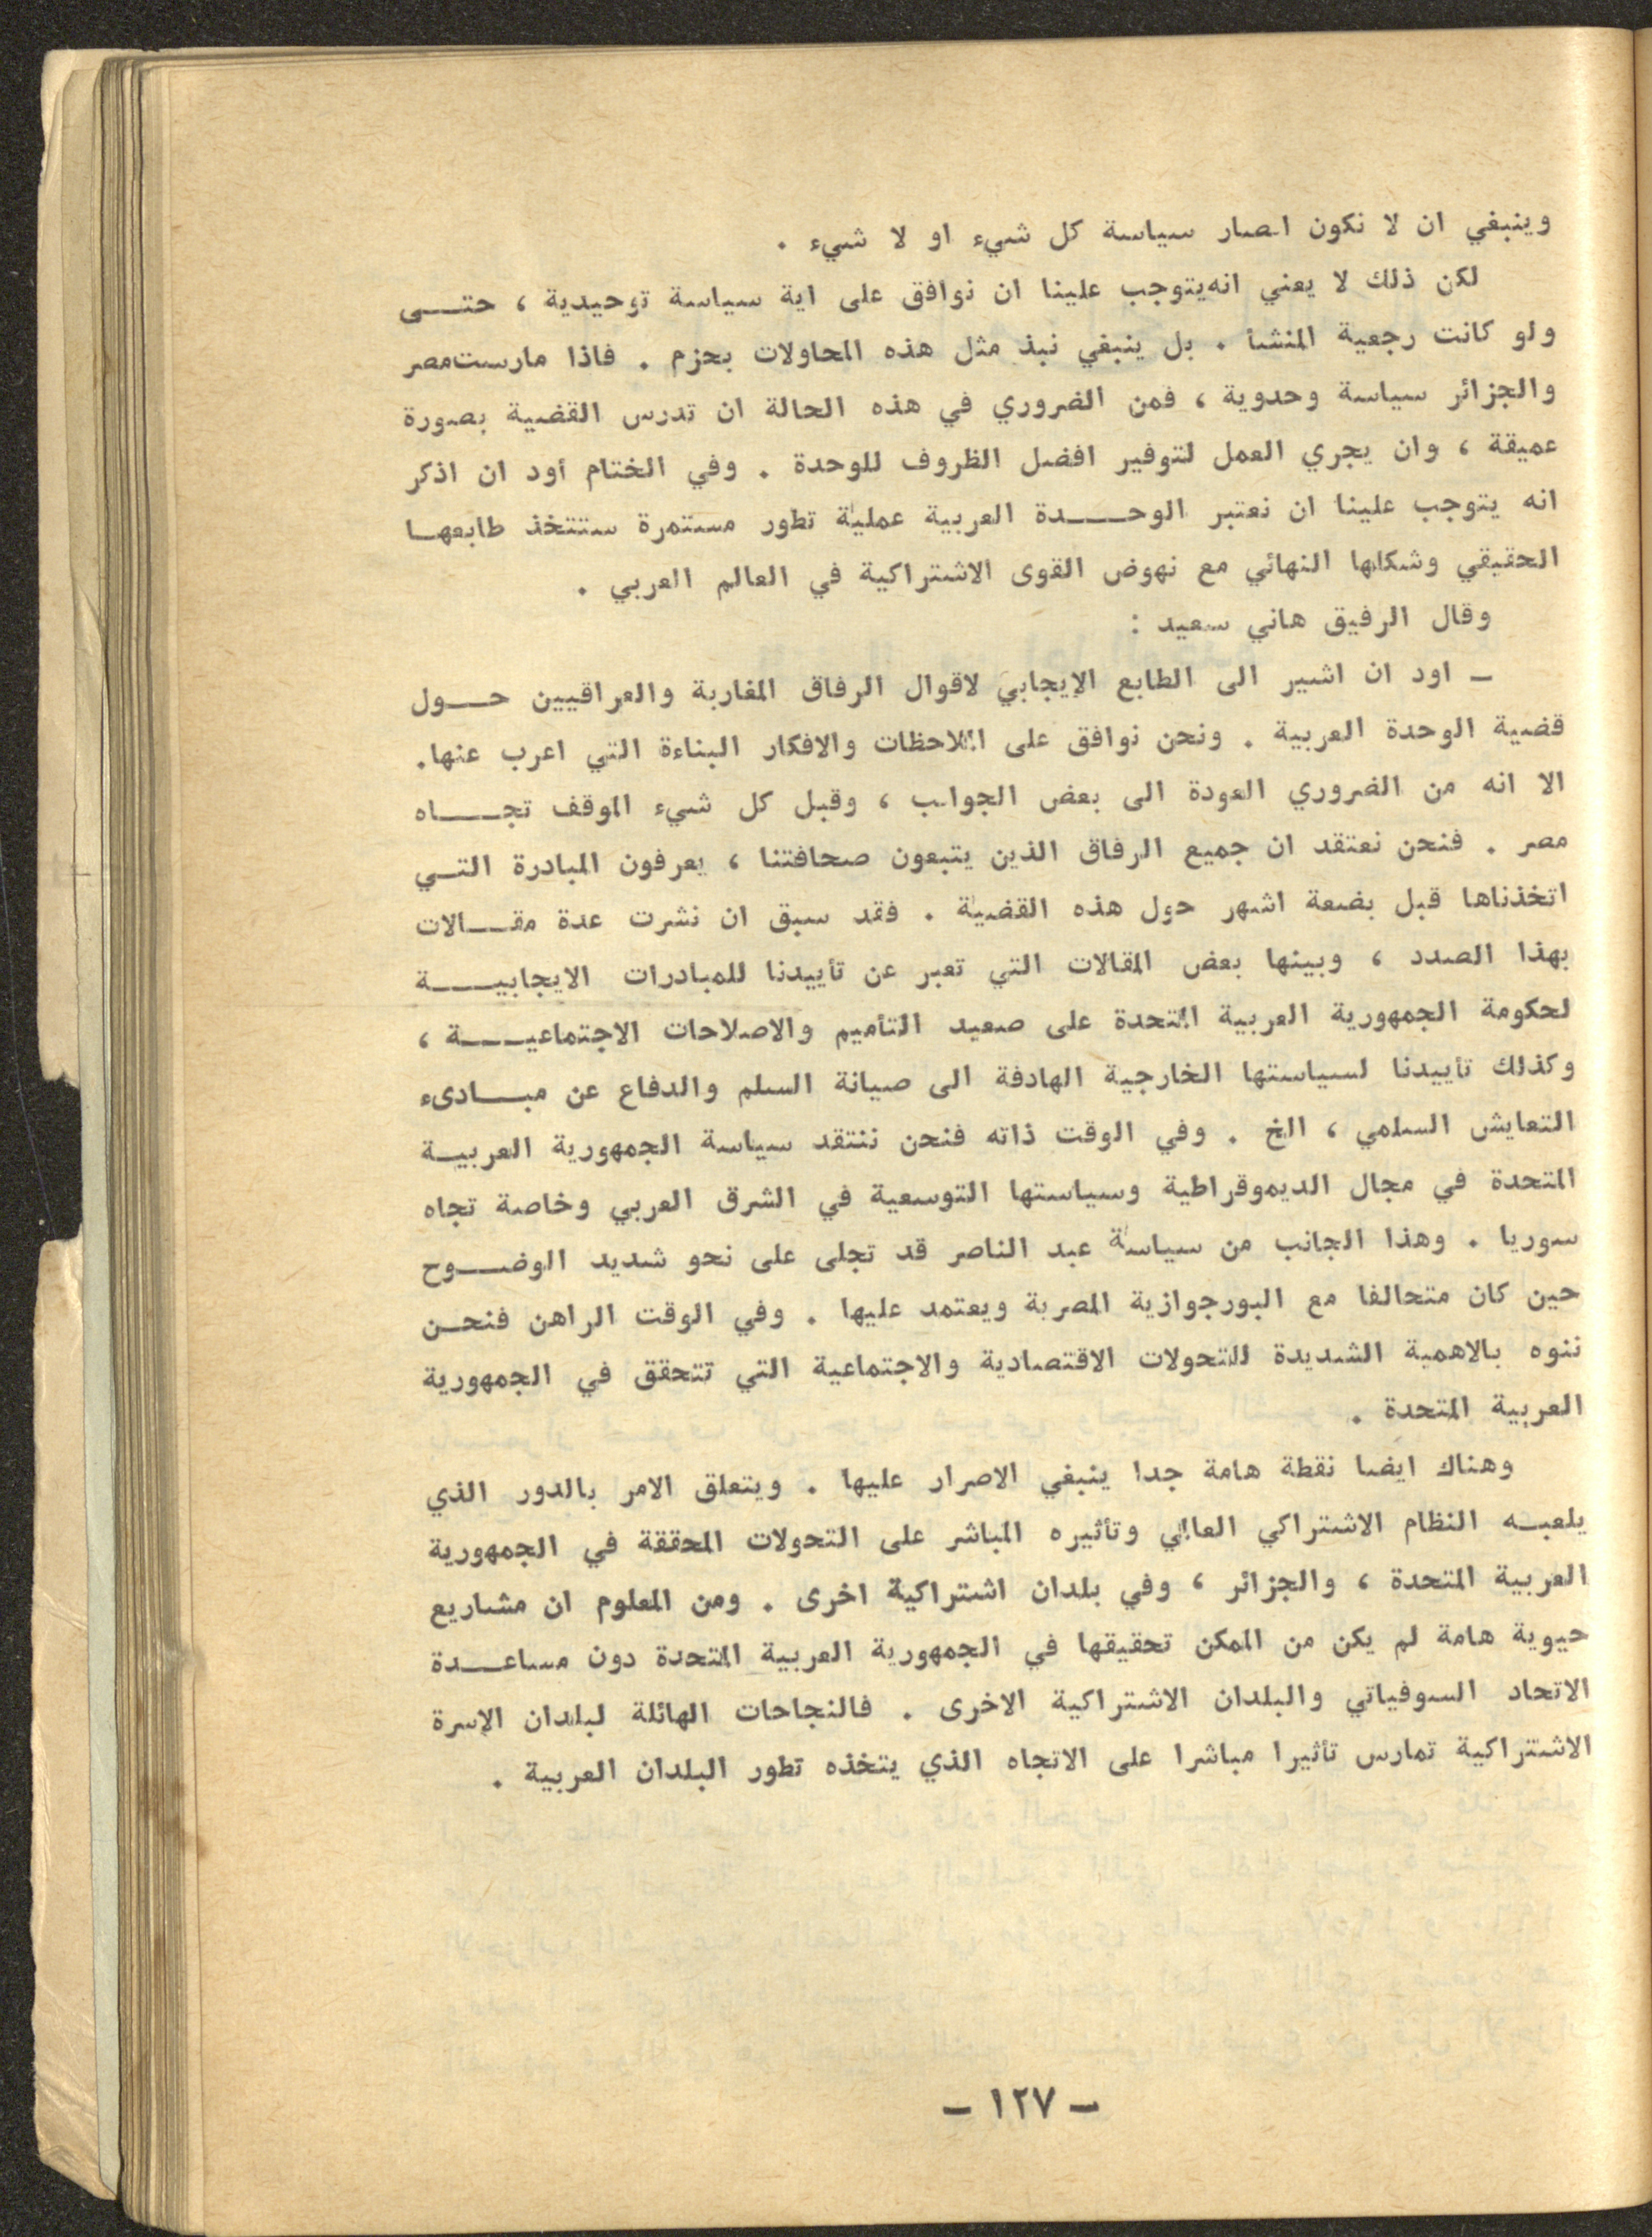 وينبغي ان لا نكون انصار سياسة كل شيء او لا شيء .
لكن ذلك لا يعني انه يتوجب علينا ان نوافق على اية سياسة توحيدية ، حتى
ولو كانت رجعية المنشأ . بل ينبغي نبذ مثل هذه المحاولات بحزم . فاذا مارست مصر
والجزائر سياسة وحدوية ، فمن الضروري في هذه الحالة ان تدرس القضية بصورة
عميقة ، وان يجري العمل لتوفير افضل الظروف للوحدة . وفي الختام أود ان اذكر
انه يتوجب علينا ان نعتبر الوحدة العربية عملية تطور مستمرة ستتخذ طابعها
الحقيقي وشكلها النهائي مع نهوض القوى الاشتراكية في العالم العربي .
وقال الرفيق هاني سعيد :
ـ اود ان اشير الى الطابع الايجابي لاقوال الرفاق المغاربة والعراقيين حول
قضية الوحدة العربية . ونحن نوافق على الملاحظات والافكار البناءة التي اعرب عنها.
الا انه من الضروري العودة الى بعض الجوانب ، وقبل كل شيء الموقف تجاه
مصر . فنحن نعتقد ان جميع الرفاق الذين يتبعون صحافتنا ، يعرفون المبادرة التي
اتخذناها قبل بضعة اشهر حول هذه القضية . فقد سبق ان نشرت عدة مقالات
بهذا الصدد ، وبينها بعض المقالات التي تعبر عن تأييدنا للمبادرات الايجابية
لحكومة الجمهورية العربية المتحدة على صعيد التأميم والاصلاحات الاجتماعية ،
وكذلك تأييدنا لسياستها الخارجية الهادفة الى صيانة السلم والدفاع عن مبادىء
التعايش السلمي ، الخ . وفي الوقت ذاته فنحن ننتقد سياسة الجمهورية العربية
المتحدة في مجال الديموقراطية وسياستها التوسعية في الشرق العربي وخاصة تجاه
سوريا . وهذا الجانب من سياسة عبد الناصر قد تجلى على نحو شديد الوضوح
حين كان متحالفا مع البورجوازية المصرية ويعتمد عليها . وفي الوقت الراهن فنحن
ننوه بالاهمية الشديدة للتحولات الاقتصادية والاجتماعية التي تتحقق في الجمهورية
العربية المتحدة .
وهناك ايضا نقطة هامة جدا ينبغي الاصرار عليها . ويتعلق الامر بالدور الذي
يلعبه النظام الاشتراكي العالمي وتأثيره المباشر على التحولات المحققة في الجمهورية
العربية المتحدة ، والجزائر ، وفي بلدان اشتراكية اخرى . ومن المعلوم ان مشاريع
حيوية هامة لم يكن من الممكن تحقيقها في الجمهورية العربية المتحدة دون مساعدة
الاتحاد السوفياتي والبلدان الاشتراكية الاخرى . فالنجاحات الهائلة لبلدان الاسرة
الاشتراكية تمارس تأثيرا مباشرا على الاتجاه الذي يتخذه تطور البلدان العربية .
– ١٢٧ –